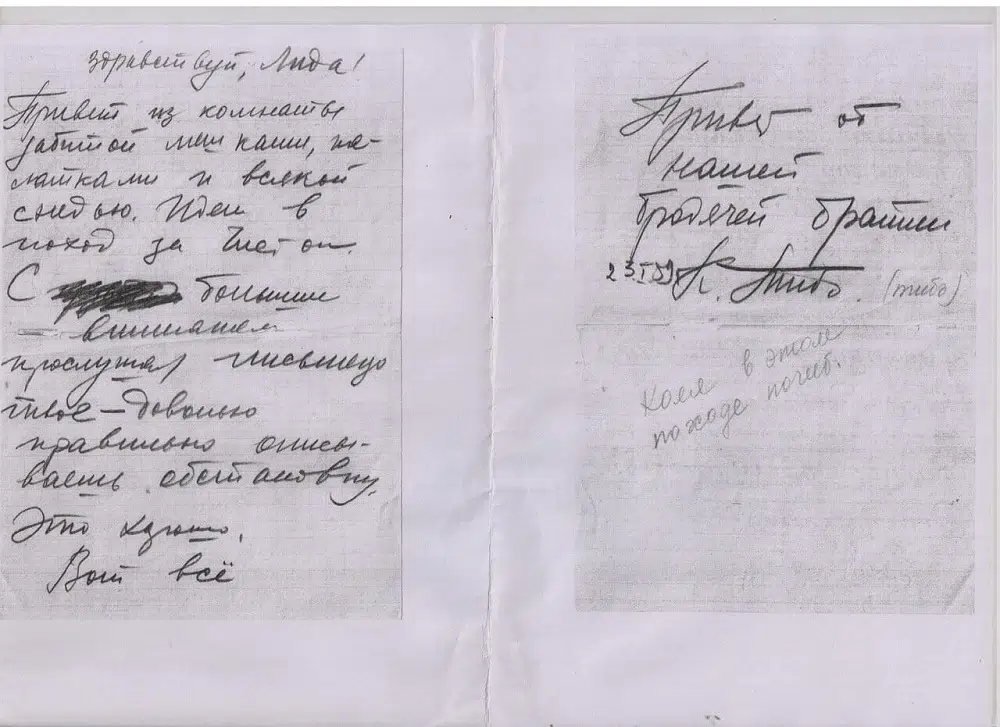 Здравствуй, Лида!
Привет из комнаты
забитой мешками, па-
латками и всякой
снедью. Идем в
поход за Чистоп.
С большим
вниманием
прослушал письмецо
твое – довольно
правильно описы-
ваешь обстановку.
Это хорошо.
Вот всё
Привет от
нашей
бродячей братии
23.I 59 К. Тибо. (тибо)
Коля в этом
походе погиб.